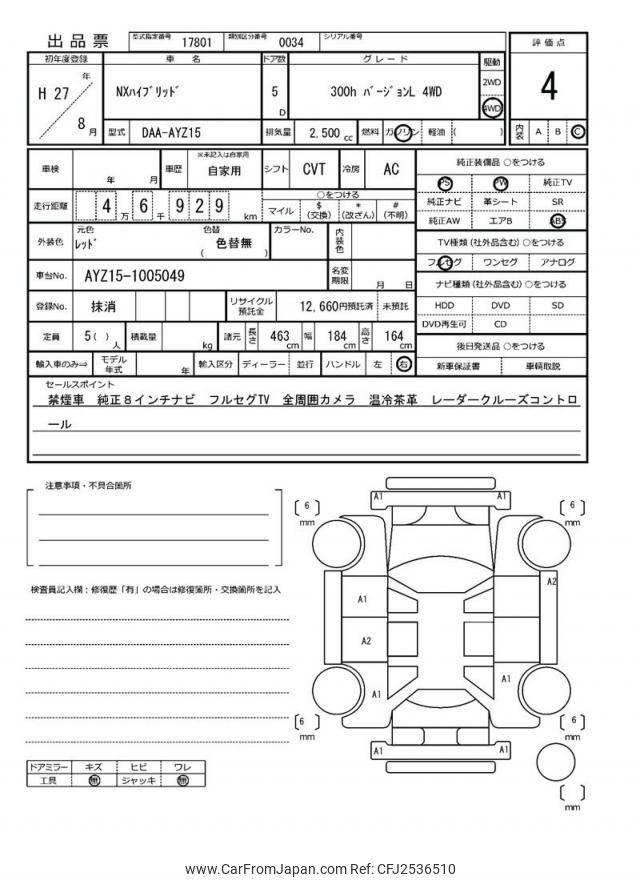 出品票 型式指定番号 17801 類別区分番号 0034 シリアル番号
初年度登録 車名 ドア数 グレード 駆動 評価点
H 27 年 8 月 NXハイブリッド 5 D 300h バージョンL 4WD 2WD 4WD 4
型式 DAA-AYZ15 排気量 2,500 cc 燃料 ガソリン 軽油 ( ) 内装 A B C
車検 年 月 車歴 ※未記入は自家用 自家用 シフト CVT 冷房 AC 純正装備品 ○をつける
PS PW 純正TV
走行距離 4 万 6 千 9 2 9 km ○をつける 純正ナビ 革シート SR
マイル $ (交換) * (改ざん) # (不明) 純正AW エアB ABS
外装色 元色 レッド 色替 色替無 ( ) カラーNo. 内装色 TV種類 (社外品含む) ○をつける
フルセグ ワンセグ アナログ
車台No. AYZ15-1005049 名変期限 月 日 ナビ種類 (社外品含む) ○をつける
登録No. 抹消 リサイクル預託金 12,660円預託済 未預託 HDD DVD SD
DVD再生可 CD
定員 5 ( ) 人 積載量 kg 諸元 長さ 463 cm 幅 184 cm 高さ 164 cm 後日発送品 ○をつける
輸入車のみ⇒ モデル年式 年 輸入区分 ディーラー 並行 ハンドル 左 右 新車保証書 車輌取説
セールスポイント
禁煙車 純正8インチナビ フルセグTV 全周囲カメラ 温冷茶革 レーダークルーズコントロ
ール
注意事項・不具合箇所
検査員記入欄:修復歴「有」の場合は修復箇所・交換箇所を記入
A1 A1
[ 6 ] mm [ 6 ] mm
A2
A1
A2
A1 A1
[ 6 ] mm [ 6 ] mm
A1 A1
[ ] mm
ドアミラー キズ ヒビ ワレ
工具 無 ジャッキ 無
www.CarFromJapan.com Ref: CFJ2536510